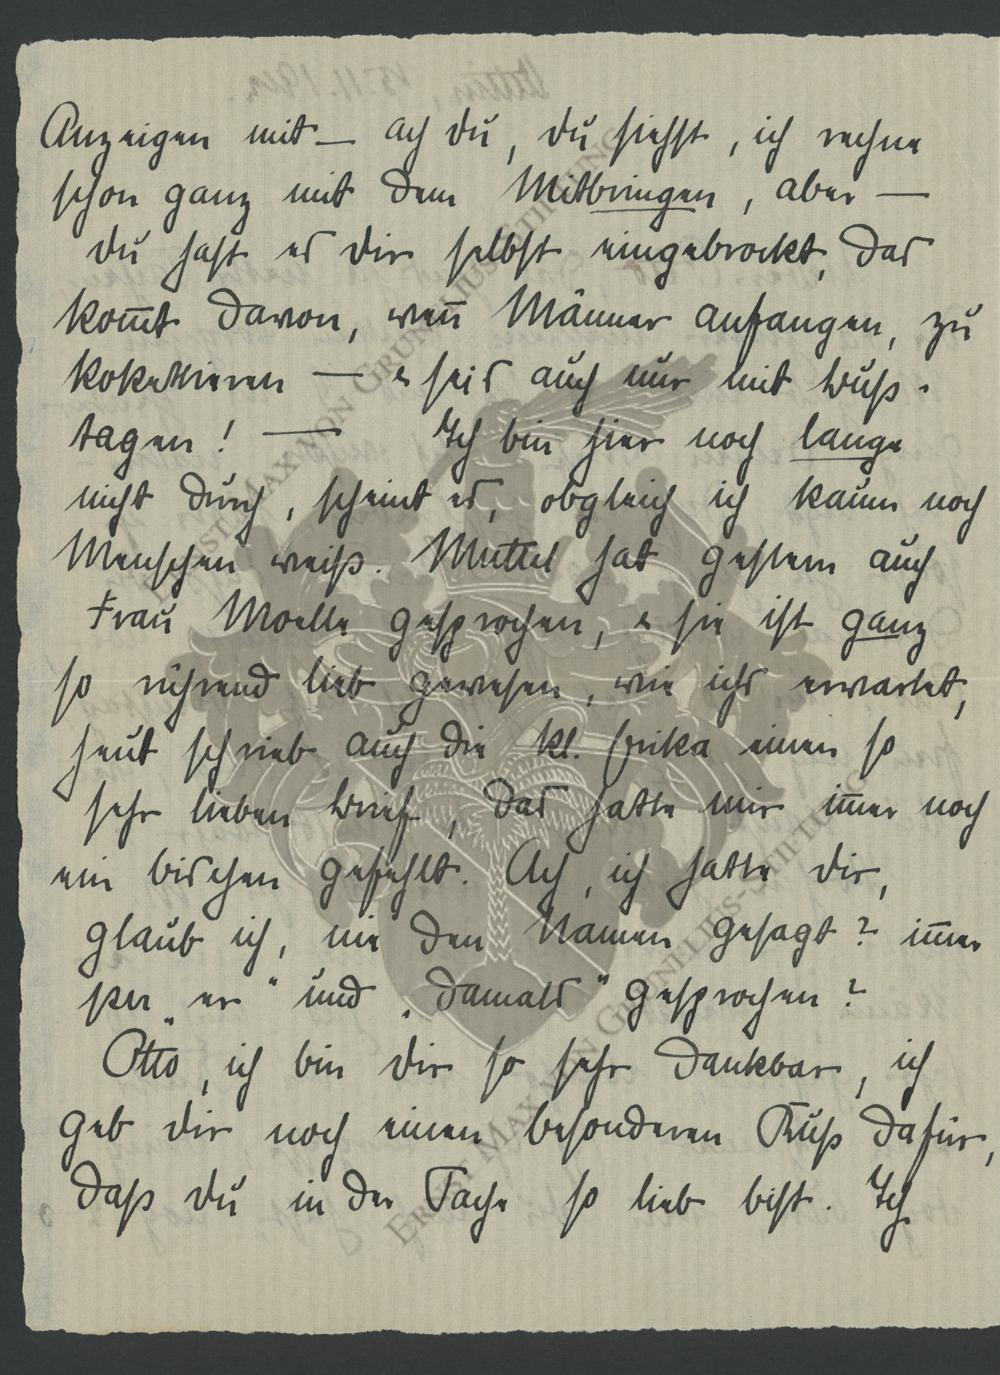 Anzeigen mit — ach du, du siehst, ich rechne
schon ganz mit dem Mitbringen, aber —
du hast es dir selbst eingebrockt, das
kom̅t davon, wen̅ Männer anfangen, zu
kokettieren — & sei's auch nur mit Buß-
tagen! — Ich bin hier noch lange
nicht durch, scheint es, obgleich ich kaum noch
Menschen weiß. Muttel hat gestern auch
Frau Moelle gesprochen, & sie ist ganz
so rührend lieb gewesen, wie ichs erwartet,
heut schrieb auch die kl. Erika einen so
sehr lieben Brief, das hatte mir im̅er noch
ein bischen gefehlt. Ach, ich hatte dir,
glaub ich, nie den Namen gesagt? im̅er
per „er“ und „damals“ gesprochen?
Otto, ich bin dir so sehr dankbar, ich
geb dir noch einen besonderen Kuß dafür,
daß du in der Sache so lieb bist. Ich
ERNST MAX VON GRUNELIUS-STIFTUNG
ERNST MAX VON GRUNELIUS-STIFTUNG